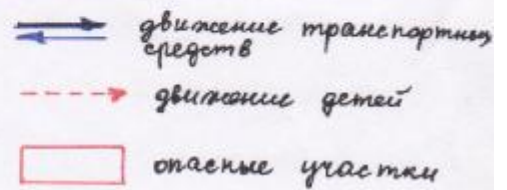 движение транспортных
средств
движение детей
опасные участки